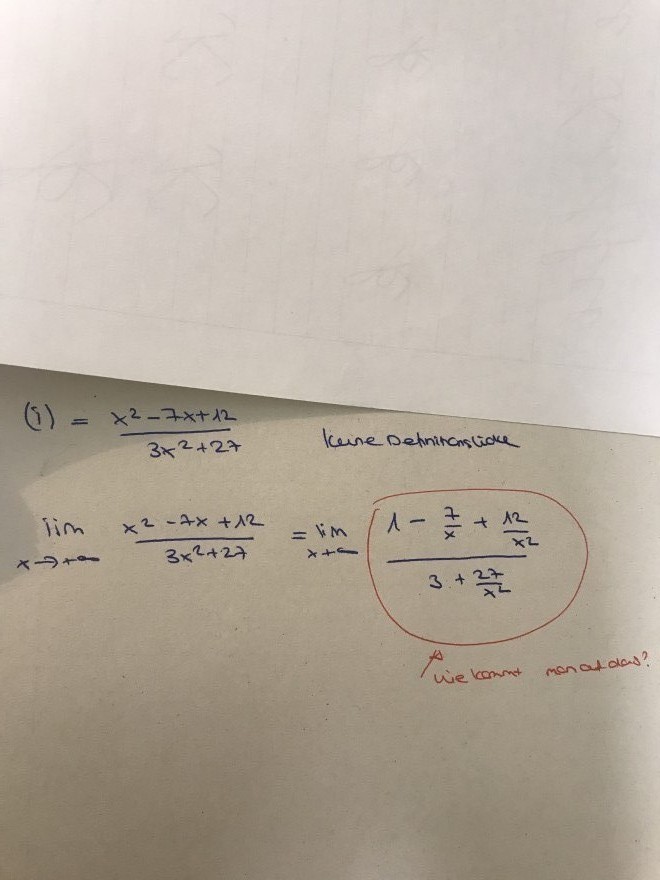 (i) = x² - 7x + 12 / 3x² + 27 keine Definitionslücke
lim x→+∞ x² - 7x + 12 / 3x² + 27 = lim x→+∞ 1 - 7/x + 12/x² / 3 + 27/x²
wie kommt man auf das?